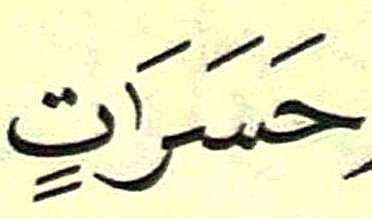 حَسَرَاتٍ